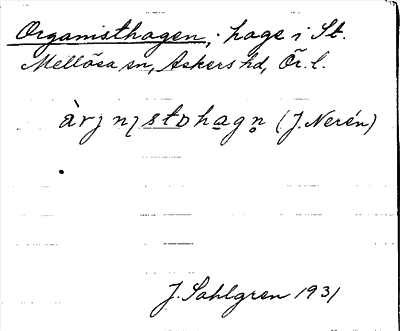 Organisthagen, hage i St.
Mellösa sn, Askers hd, Ör. l.
(J. Nerén)
J. Sahlgren 1931